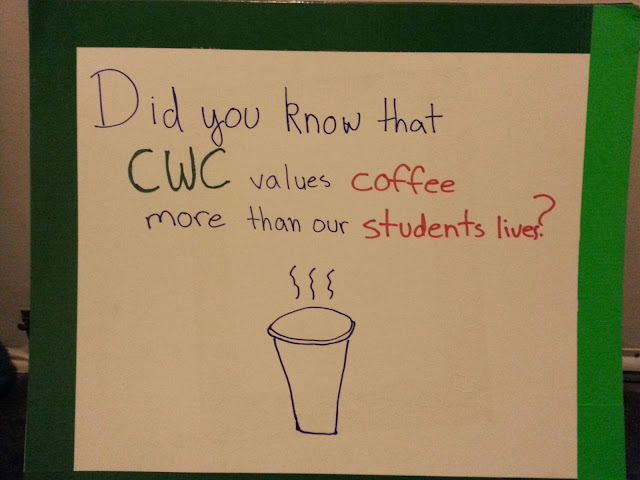 Did you know that
CWC values coffee
more than our students lives?